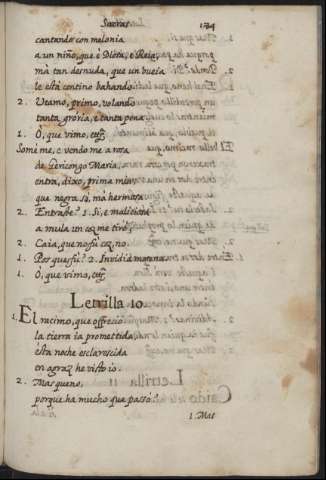 Sacras 174
cantando con melonia
a un niño, que é Diosa, e Reia,
ma tan desnuda, que un bueia
le está contino bahando.
2. Vtamo, primo, volando
tanta groria, e tanta pena
1. O, que vimo, etc.
Somi me, e vendo me a rosa
de Gericongo Maria.
entra, dixo, prima mia
que negra so, ma hermosa
2. Entrate? 1. Si, e maliciosa
a mula un coz me tiró,
2. Caia, que no fu coz, no.
1. Pos que fu? 2. Invidia matana.
1. O, que vimo, etc.
Letrilla 10.
1. El racimo, que offreció
la tierra ia prometida,
esta noche esclarecida
en agraz he visto io.
2. Mas que no,
porque ha mucho que passó.
1. Mas